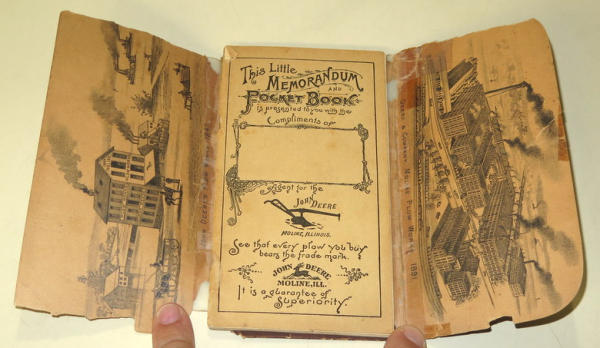 This Little
MEMORANDUM
AND
POCKET BOOK
is presented to you with the
Compliments of
Agent for the
JOHN DEERE
MOLINE, ILLINOIS.
See that every plow you buy
bears the trade mark.
JOHN DEERE
MOLINE, ILL.
It is a guarantee of
Superiority.
DEERE & COMPANY MOLINE PLOW WORKS 189